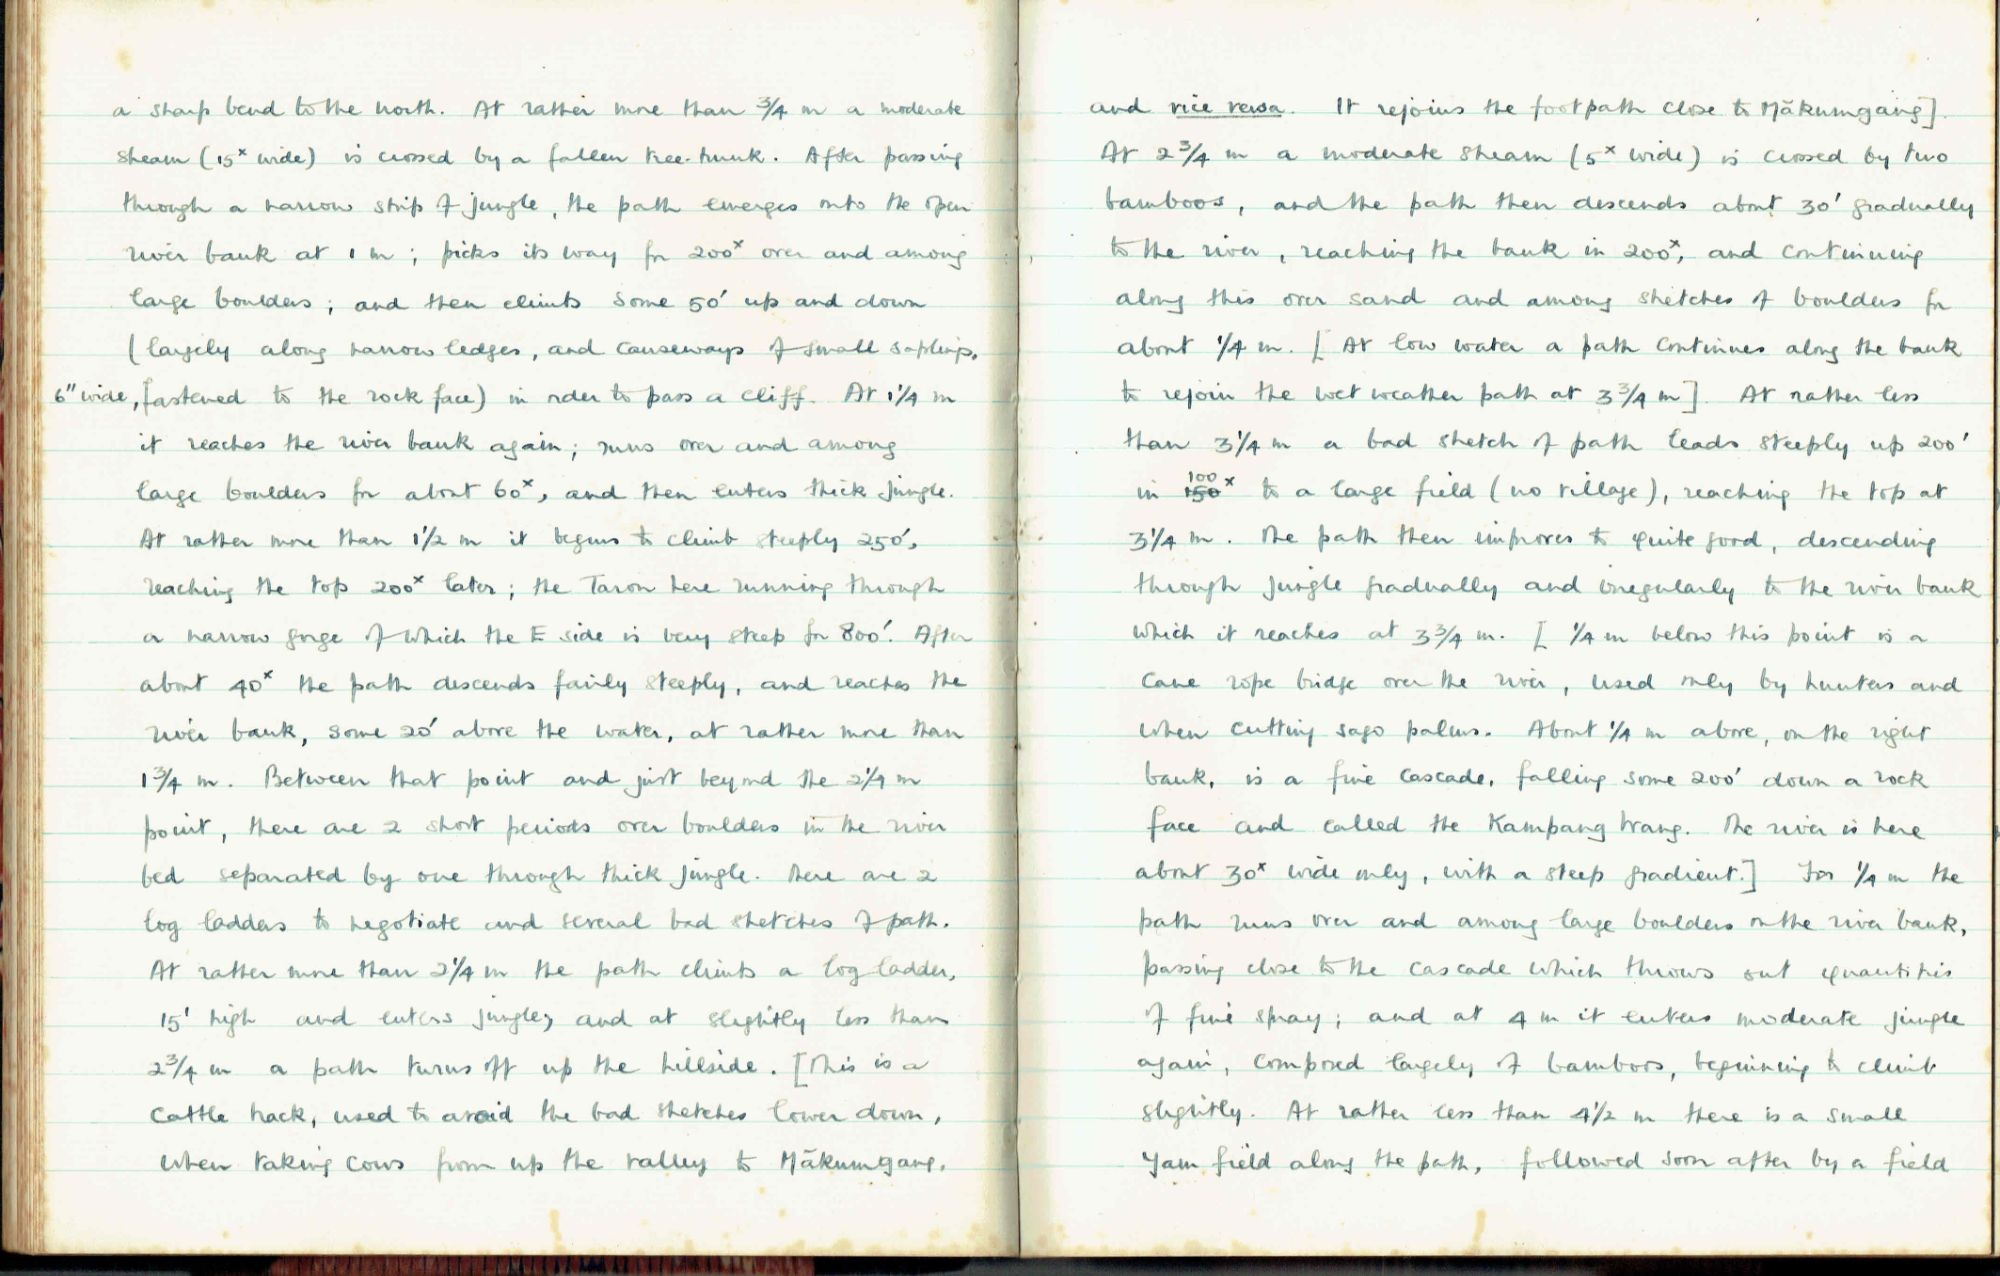 a sharp bend to the north. At rather more than 3/4 m a moderate
stream (15ˣ wide) is crossed by a fallen tree-trunk. After passing
through a narrow strip of jungle, the path emerges onto the open
river bank at 1 m; picks its way for 200ˣ over and among
large boulders; and then climbs some 50' up and down
(largely along narrow ledges, and causeways of small saplings,
6" wide, fastened to the rock face) in order to pass a cliff. At 1 1/4 m
it reaches the river bank again; runs over and among
large boulders for about 60ˣ, and then enters thick jungle.
At rather more than 1 1/2 m it begins to climb steeply 250',
reaching the top 200ˣ later; the Taron here running through
a narrow gorge of which the E side is very steep for 800'. After
about 40ˣ the path descends fairly steeply, and reaches the
river bank, some 20' above the water, at rather more than
1 3/4 m. Between that point and just beyond the 2 1/4 m
point, there are 2 short periods over boulders in the river
bed separated by one through thick jungle. There are 2
log ladders to negotiate and several bad stretches of path.
At rather more than 2 1/4 m the path climbs a log ladder,
15' high and enters jungle, and at slightly less than
2 3/4 m a path turns off up the hillside. [This is a
cattle track, used to avoid the bad stretches lower down,
when taking cows from up the valley to Mākumgang,
and vice versa. It rejoins the footpath close to Mākumgang].
At 2 3/4 m a moderate stream (5ˣ wide) is crossed by two
bamboos, and the path then descends about 30' gradually
to the river, reaching the bank in 200ˣ, and continuing
along this over sand and among stretches of boulders for
about 1/4 m. [At low water a path continues along the bank
to rejoin the wet weather path at 3 3/4 m]. At rather less
than 3 1/4 m a bad stretch of path leads steeply up 200'
in 150 100ˣ to a large field (no village), reaching the top at
3 1/4 m. The path then improves to quite good, descending
through jungle gradually and irregularly to the river bank
which it reaches at 3 3/4 m. [1/4 m below this point is a
cane rope bridge over the river, used only by hunters and
when cutting sago palms. About 1/4 m above, on the right
bank, is a fine cascade, falling some 200' down a rock
face and called the Kampang Wang. The river is here
about 30ˣ wide only, with a steep gradient.] For 1/4 m the
path runs over and among large boulders on the river bank,
passing close to the cascade which throws out quantities
of fine spray; and at 4 m it enters moderate jungle
again, composed largely of bamboos, beginning to climb
slightly. At rather less than 4 1/2 m there is a small
yam field along the path, followed soon after by a field